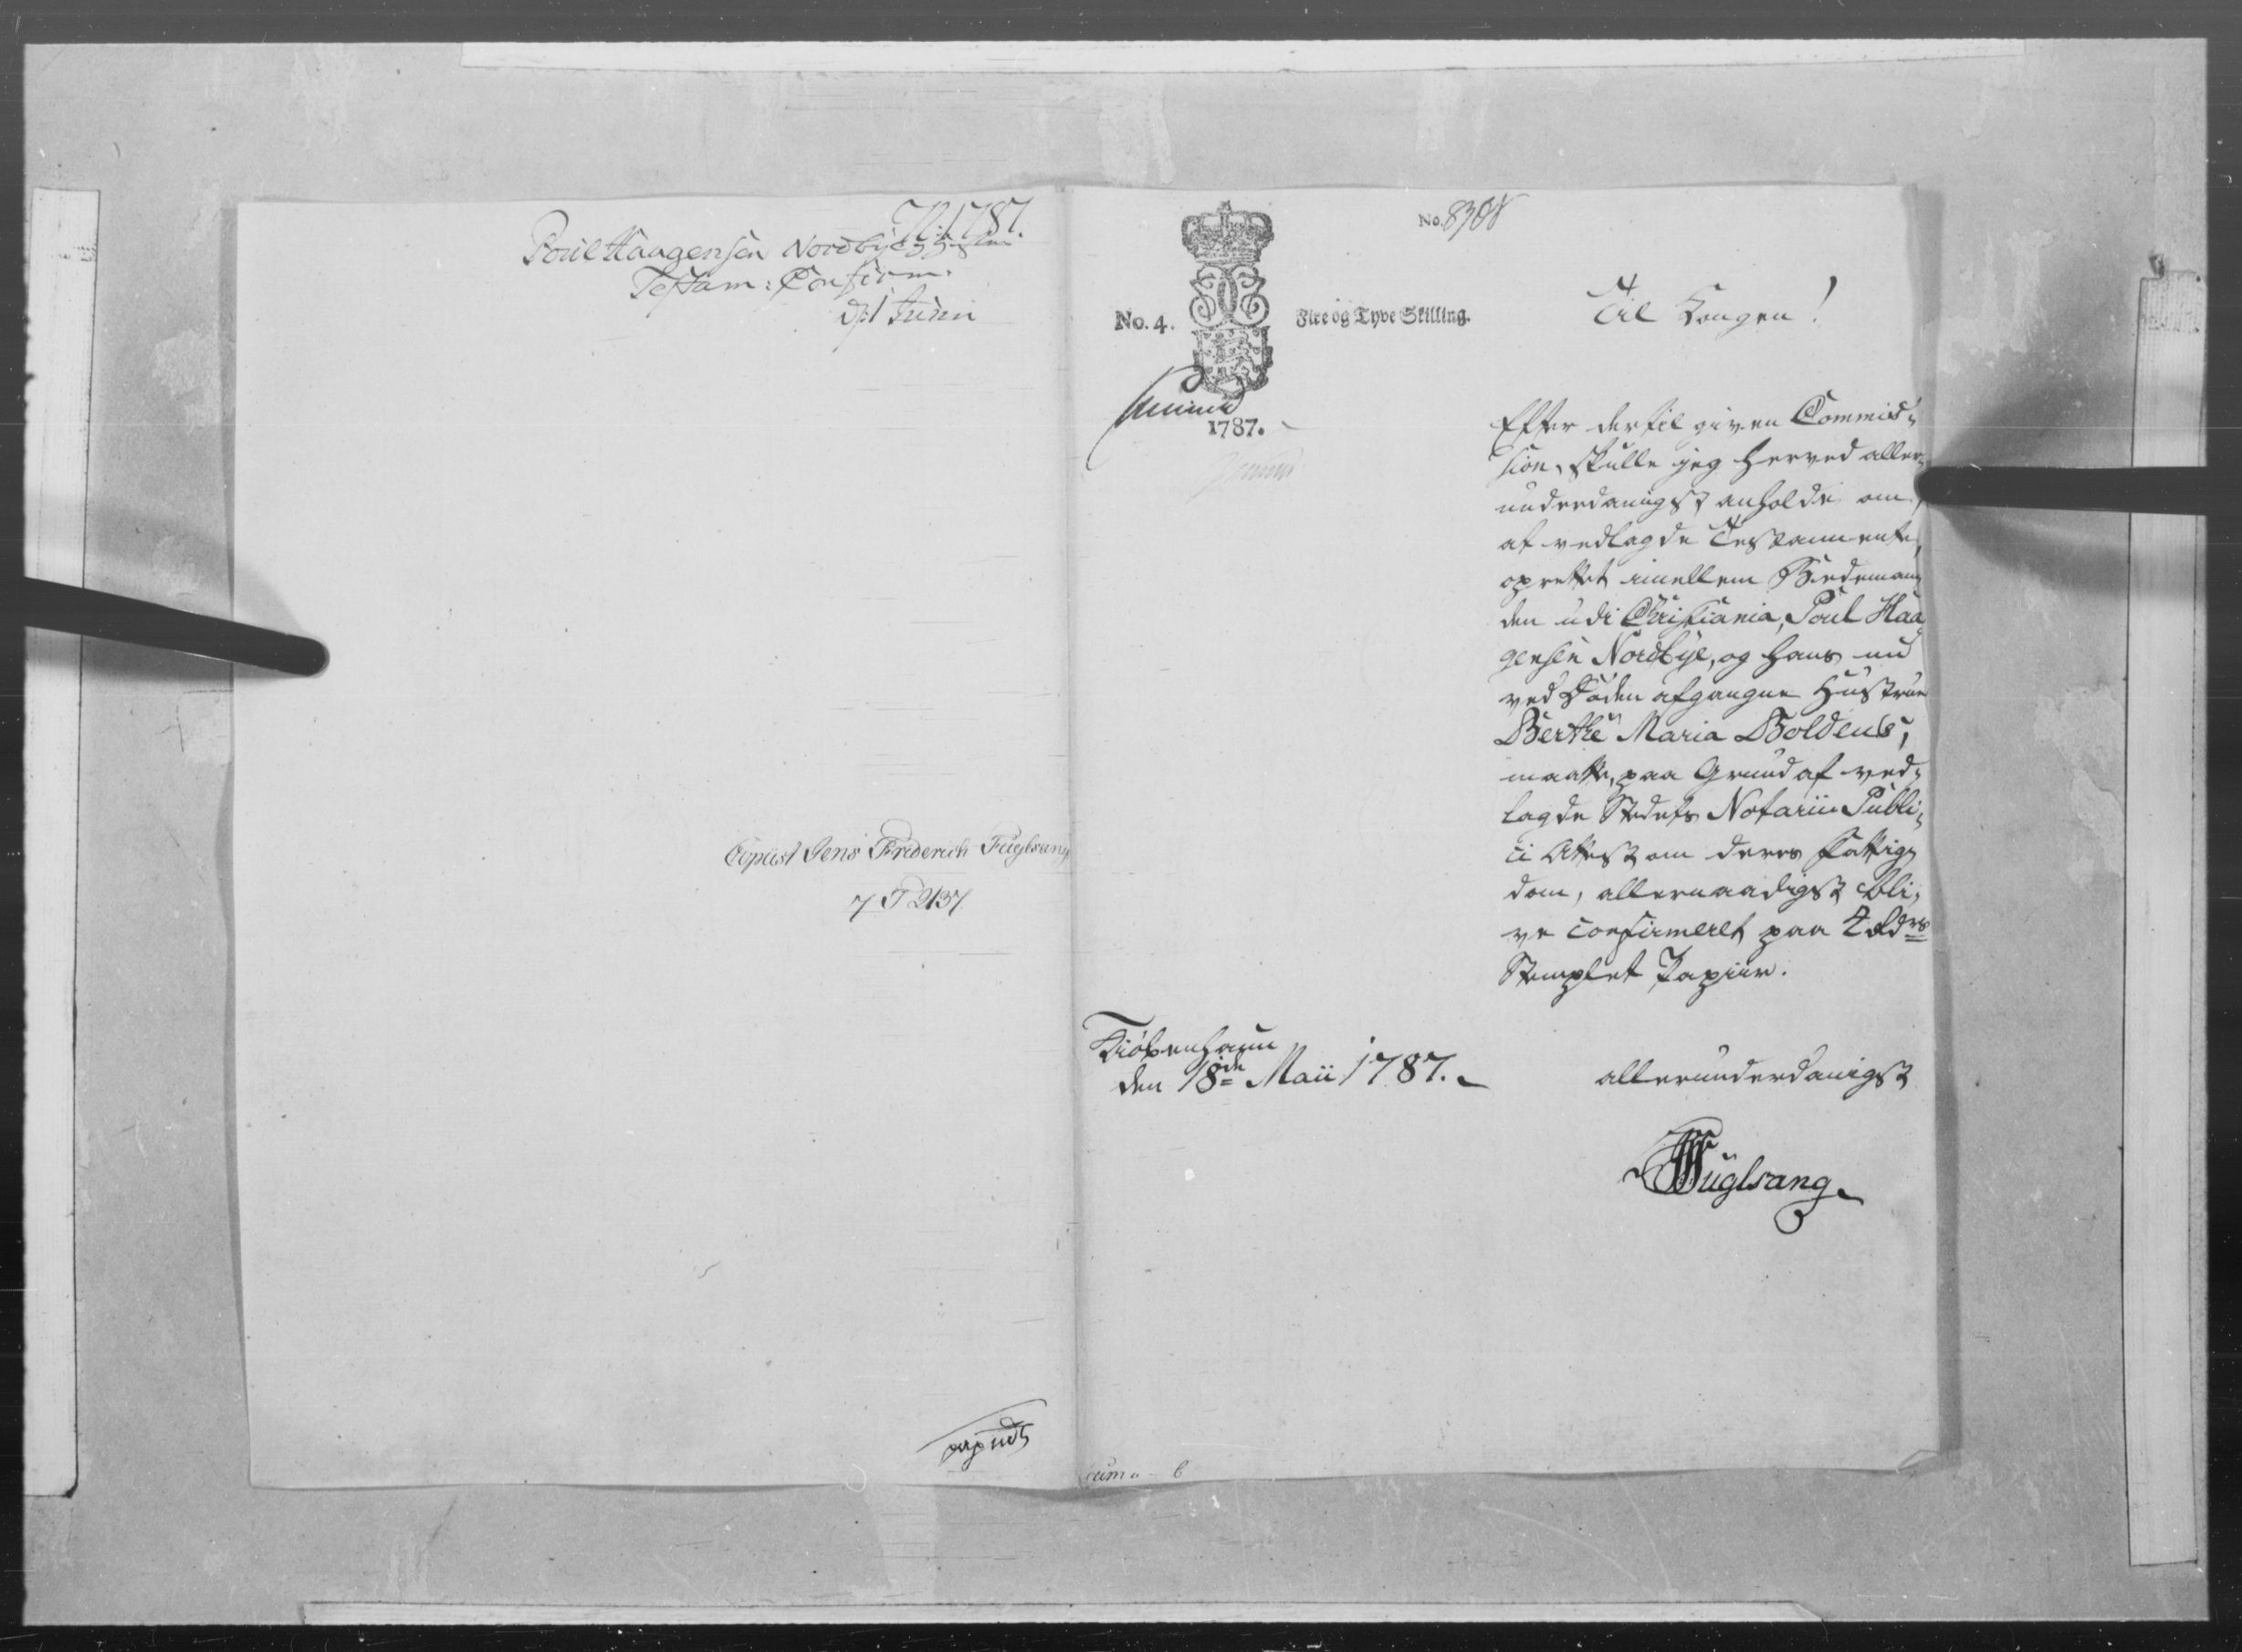 1787.
Poul Haagensen Nordbye
Testam: Confirm:
d: 1 Junii
Copiist Jens Friderich Fuglsang
7 T 2137
expedt
No. 8308
No. 4.
Fire og Tyve Skilling.
1787.
Til Kongen!
Efter dertil given Commis-
sion, skulle jeg herved aller-
underdanigst anholde om,
at vedlagde Testamente,
oprettet imellem Bedeman-
den udi Christiania, Poul Haa-
gensen Nordbye, og hans nu
ved Døden afgangne Hustrue
Berthe Maria Boldens,
maatte, paa Grund af ved-
lagde Stedets Notarii Publi-
ci Attest om deres Fattig-
dom, allernaadigst bli-
ve confirmeret paa 2 Rdrs
Stemplet Papiir.
Kiøbenhavn
den 18de Maii 1787.
allerunderdanigst
Fuglsang